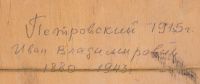 Петровский 1915г.
Иван Владимирович
1880 - 1943